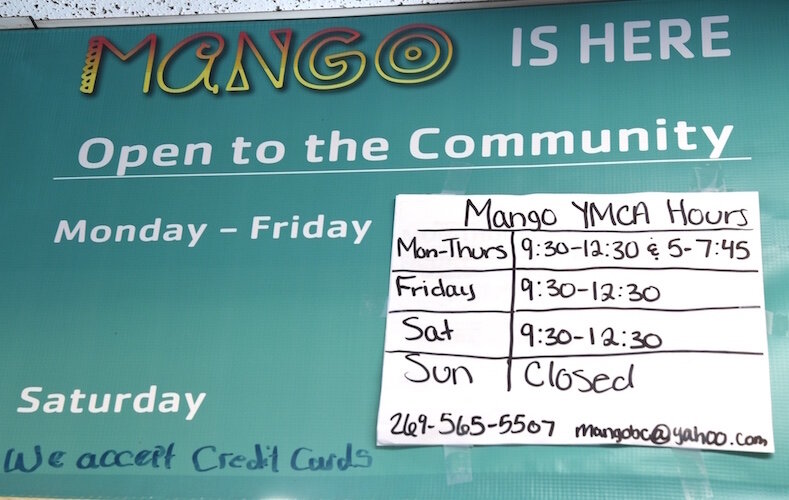 MANGO IS HERE
Open to the Community
Monday – Friday
Mango YMCA Hours
Mon-Thurs 9:30-12:30 & 5-7:45
Friday 9:30-12:30
Sat 9:30-12:30
Sun Closed
269-565-5507 mangobc@yahoo.com
Saturday
We accept Credit Cards